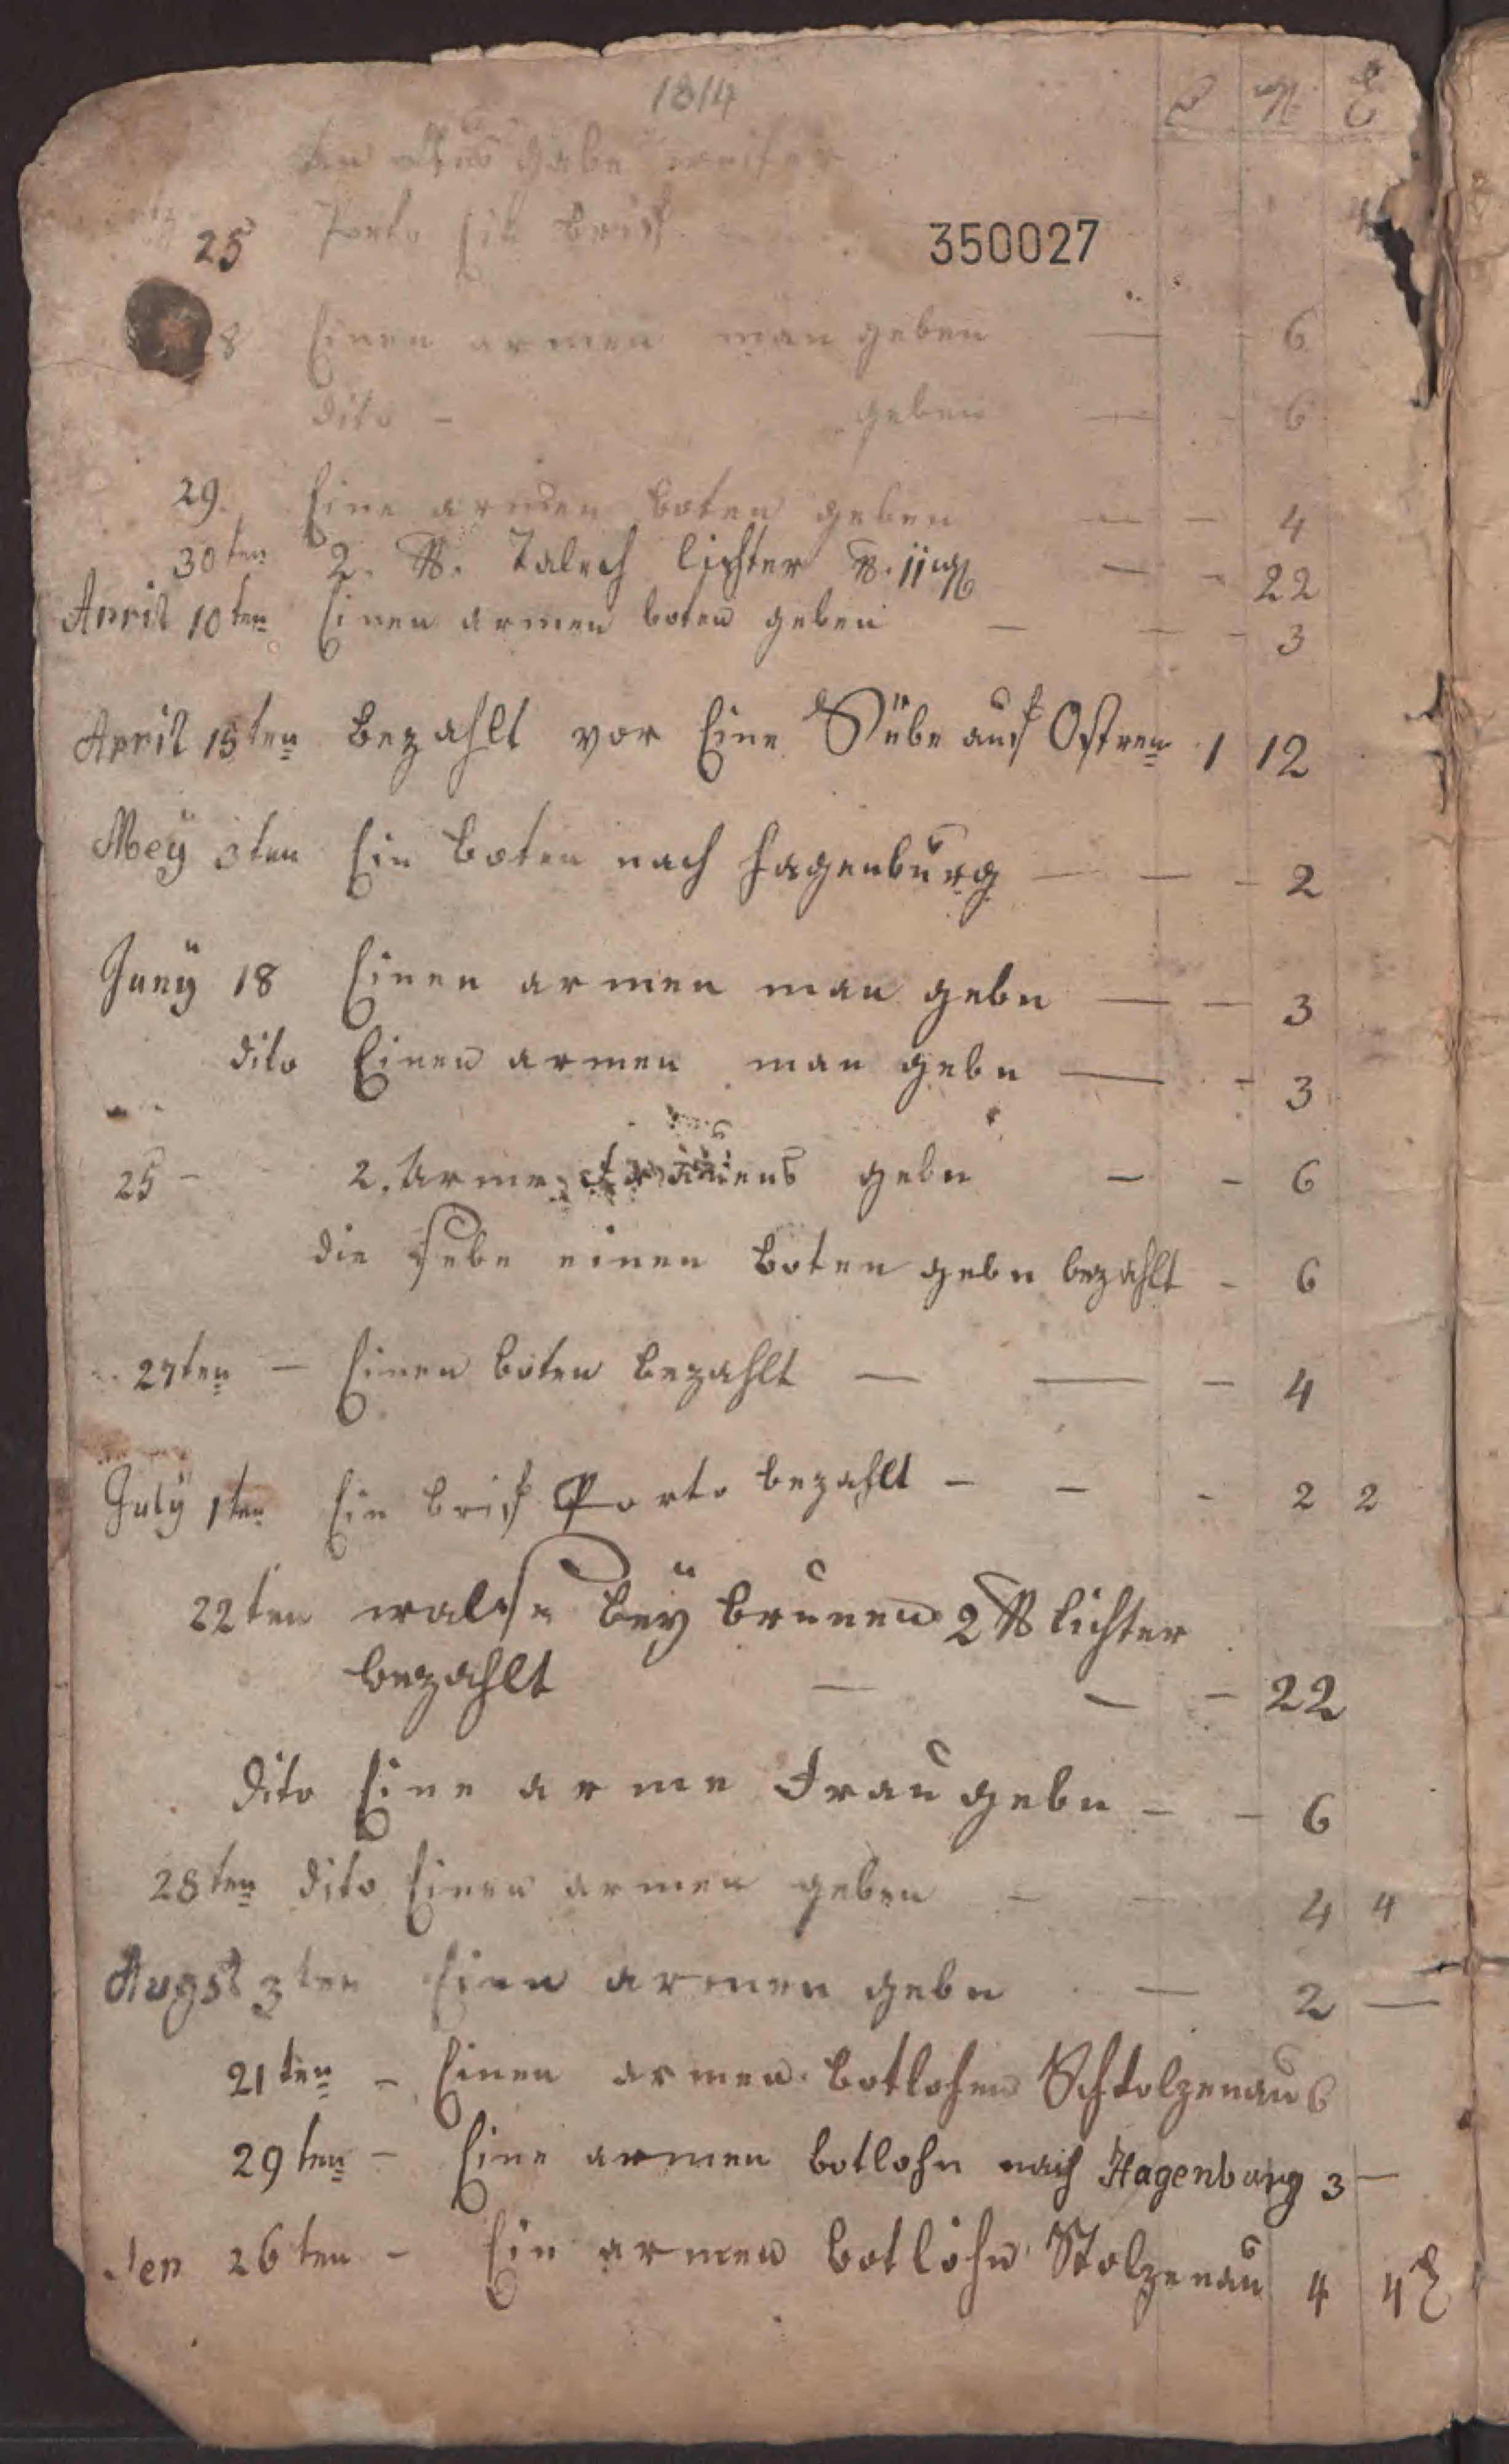 1814
an aus gabe weiter
25 Porto für brief
350027
8 Einen armen man geben — - 6
dito - geben — - 6
29. Eine armen boten geben — - 4
30ten 2. ℔. Talech lichter ℔. 11 mg — - 22
April 10ten Einen armen boten geben — - - 3
April 15ten bezahlt vor Eine auf Ostren 1 12
Mey 3ten Ein boten nach Hagenburg — — - 2
Juny 18 Einen armen man gebn — - 3
dito Einen armen man gebn — - 3
25 - 2. Arme gebn - - 6
die selbe einen boten gebn bezahlt - 6
27ten - Einen boten bezahlt — — - 4
July 1ten Ein brif Porto bezahlt - - - 2 2
22ten bey brunen 2 ℔ lichter
bezahlt — - - 22
Dito Eine arme Frau gebn - - 6
28ten dito Einen armen geben - - 4 4
Augst 3ten Einen armen gebn — 2 —
21ten - Einen armen botlohn Schtolzenau 6
29ten - Eine armen botlohn nach Hagenburg 3 —
den 26ten - Ein armen botlohn Stolzenau 4 4 ₰